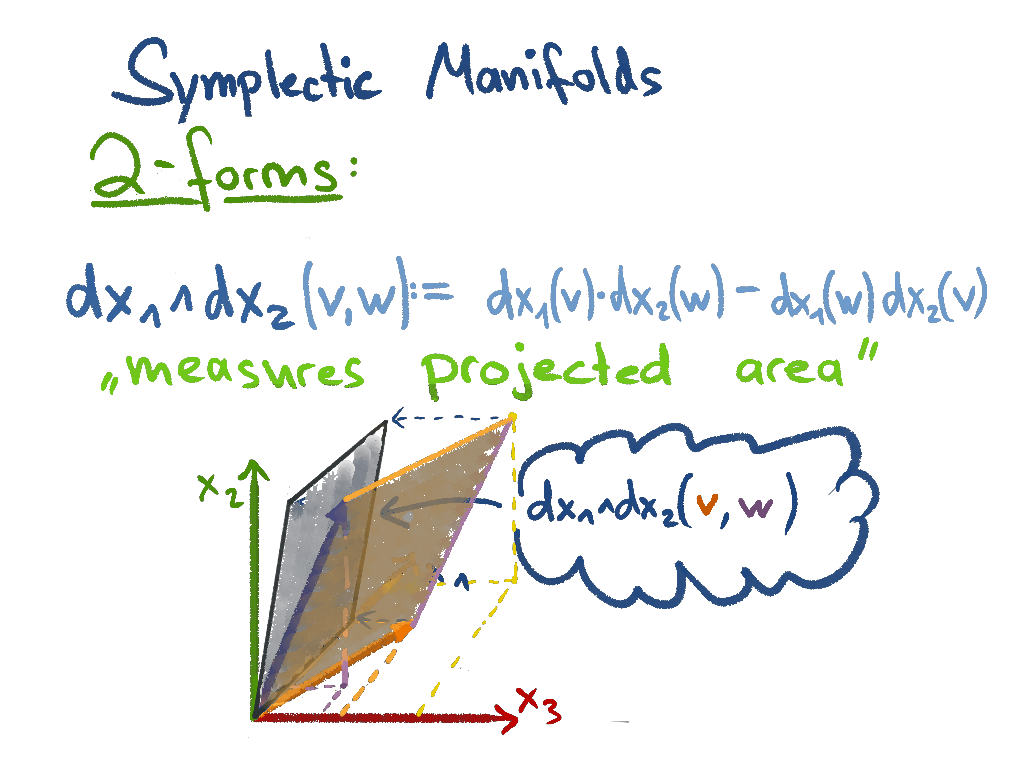 Symplectic Manifolds
2-forms:
dx₁∧dx₂(v,w):= dx₁(v)·dx₂(w) - dx₁(w)dx₂(v)
„measures projected area"
x₂
dx₁∧dx₂(v, w)
x₃